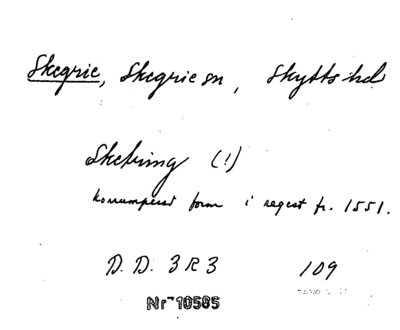 Skegrie, Skegrie sn, Skytts hd
Sketring (!)
korrumperad form i regest fr. 1551.
D. D. 3 R 3 109
Nr 10585